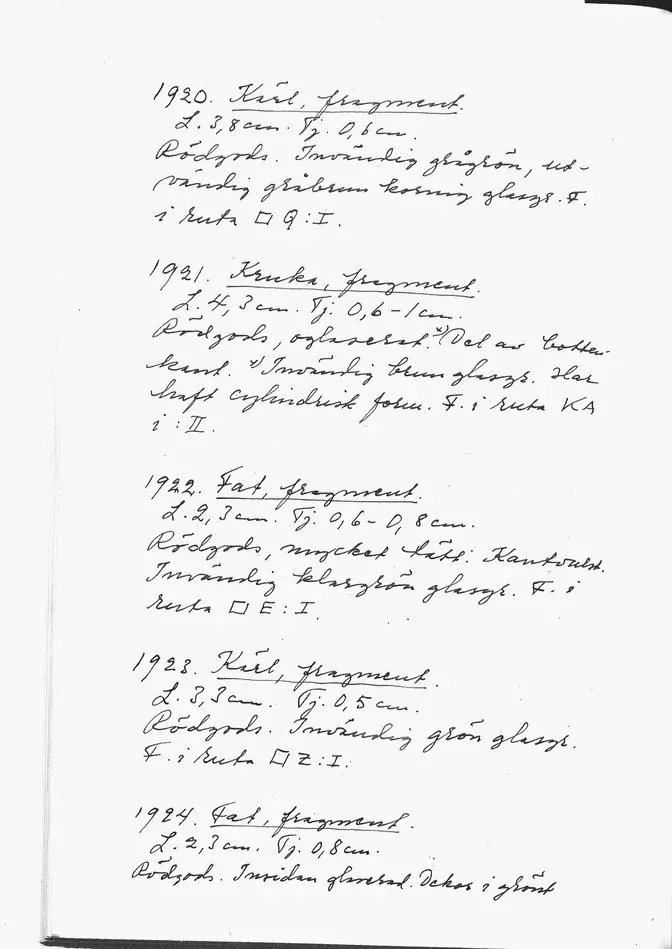 1920. Kärl, fragment.
L. 3,8 cm. Tj. 0,6 cm.
Rödgods. Invändig grågrön, ut-
vändig gråbrun kornig glasyr. F.
i ruta □ Q : I.
1921. Kruka, fragment.
L. 4,3 cm. Tj. 0,6-1 cm.
Rödgods, oglaserat. x) Del av botten-
kant. x) Invändig brun glasyr. Har
haft cylindrisk form. F. i ruta KA
i : II.
1922. Fat, fragment.
L. 2,3 cm. Tj. 0,6-0,8 cm.
Rödgods, mycket tätt. Kantvulst.
Invändig klargrön glasyr. F. i
ruta □ E : I.
1923. Kärl, fragment.
L. 3,3 cm. Tj. 0,5 cm.
Rödgods. Invändig grön glasyr.
F. i ruta □ Z : I.
1924. Fat, fragment.
L. 2,3 cm. Tj. 0,8 cm.
Rödgods. Insidan glaserad. Dekor i grönt